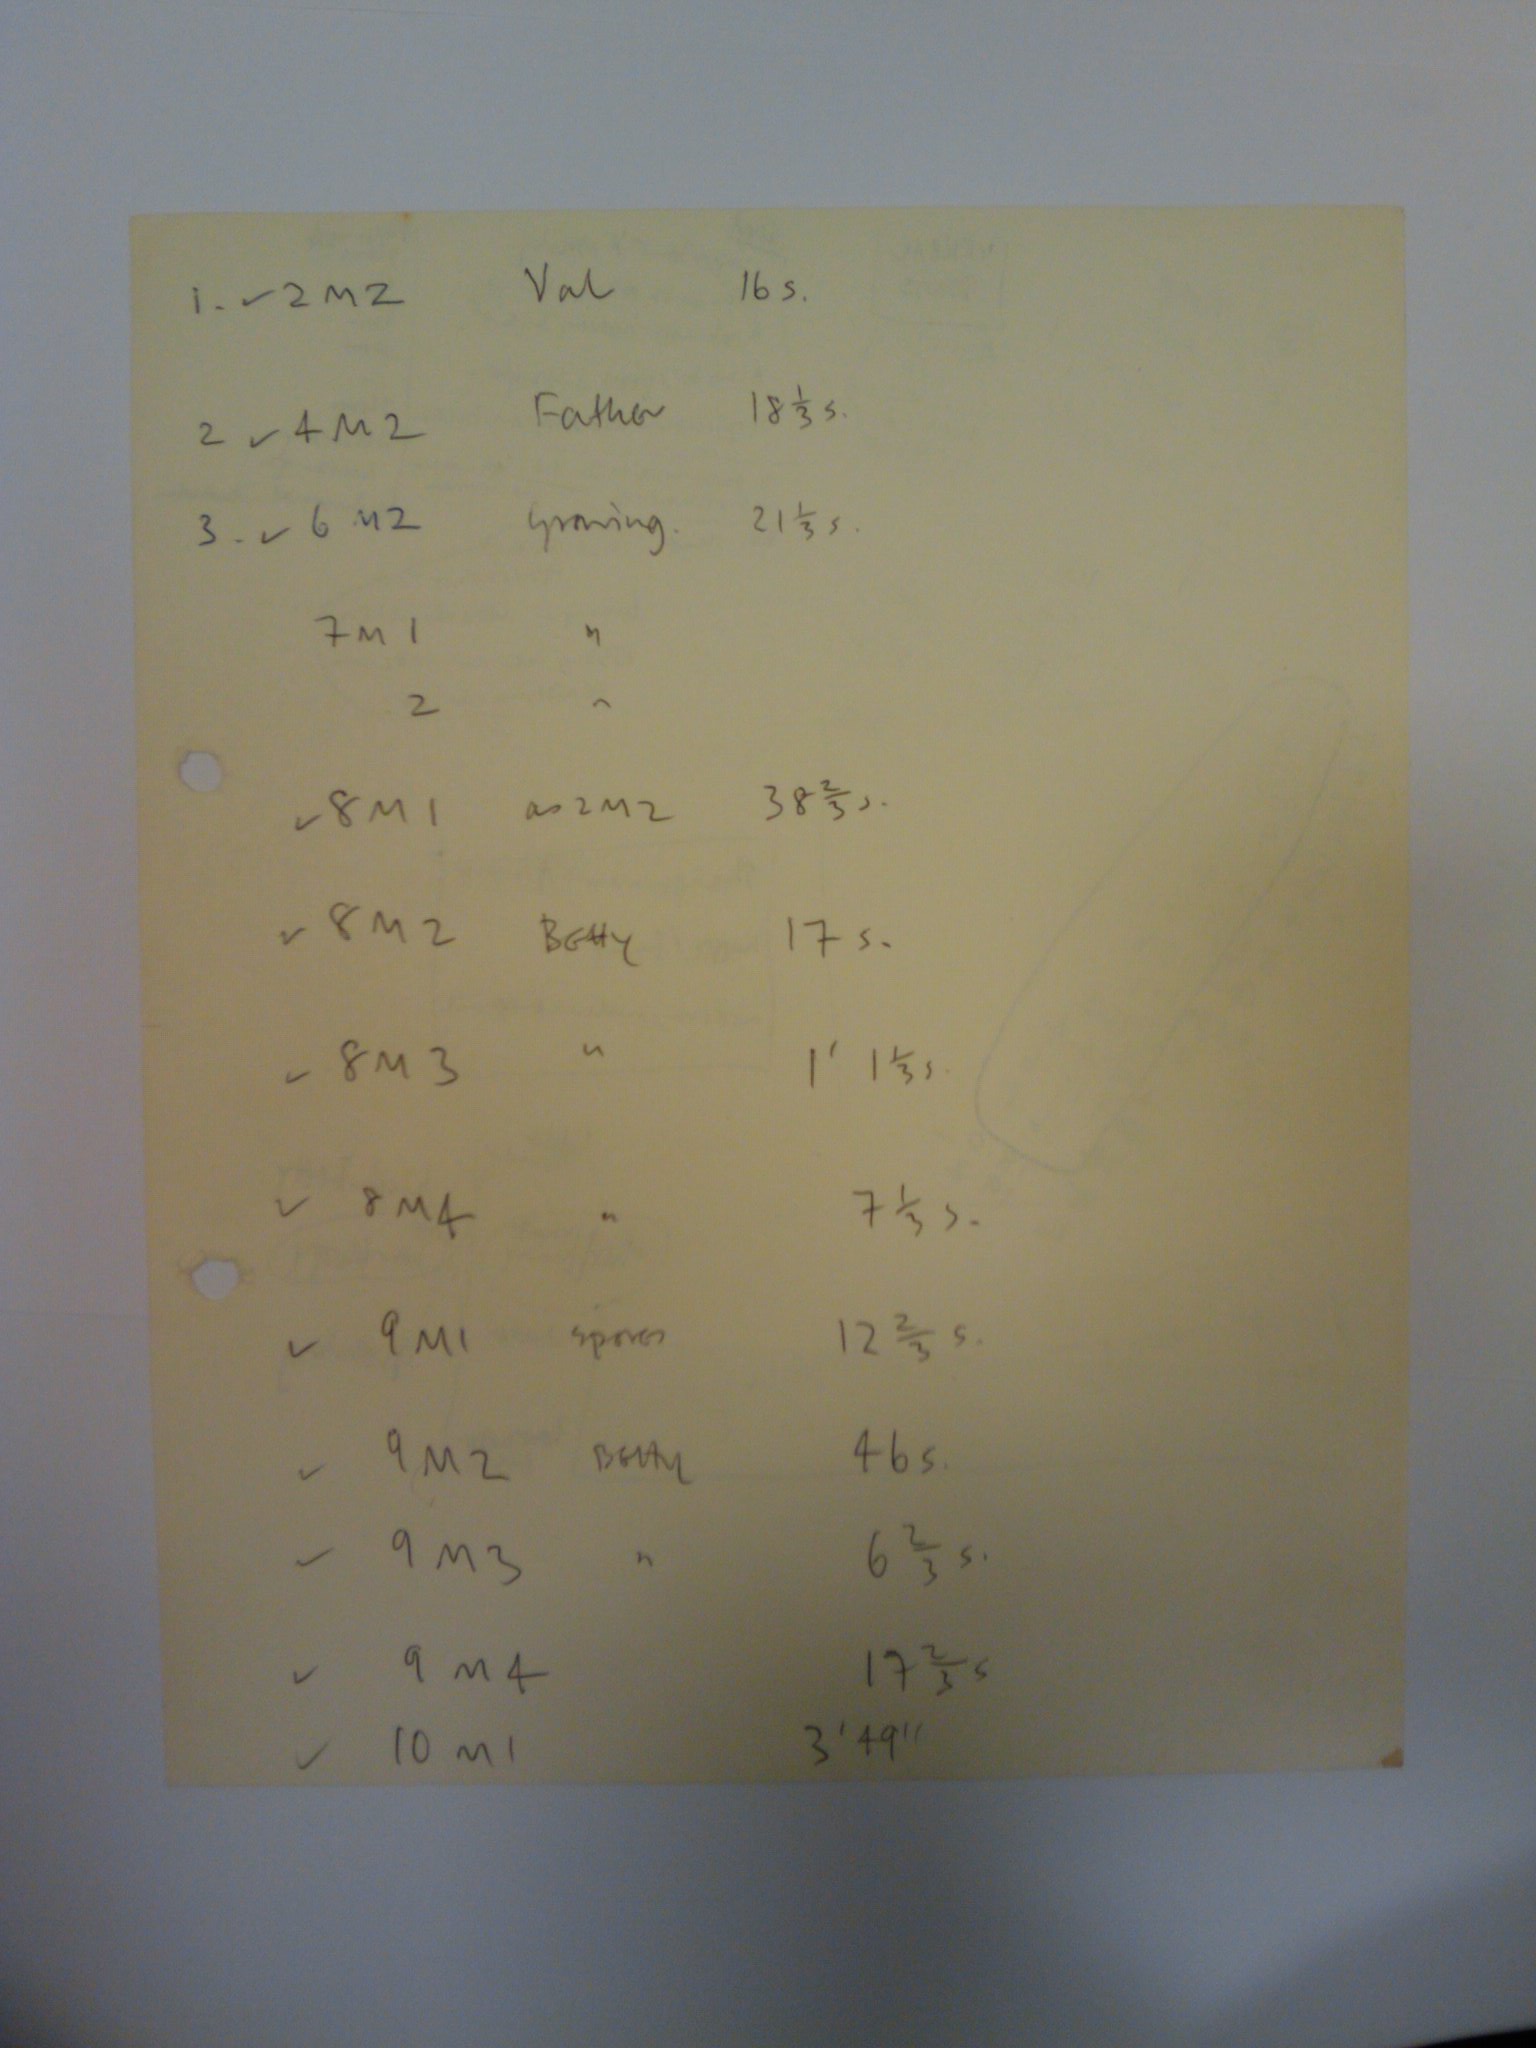 1. ✓ 2M2 Val 16 s.
2 ✓ 4M2 Father 18 1/3 s.
3. ✓ 6M2 Growing. 21 1/3 s.
7M1 "
2 "
✓ 8M1 as 2M2 38 2/3 s.
✓ 8M2 Betty 17 s.
✓ 8M3 " 1' 1 1/3 s.
✓ 8M4 " 7 1/3 s.
✓ 9M1 spores 12 2/3 s.
✓ 9M2 Betty 46 s.
✓ 9M3 " 6 2/3 s.
✓ 9M4 17 2/3 s
✓ 10M1 3'49"